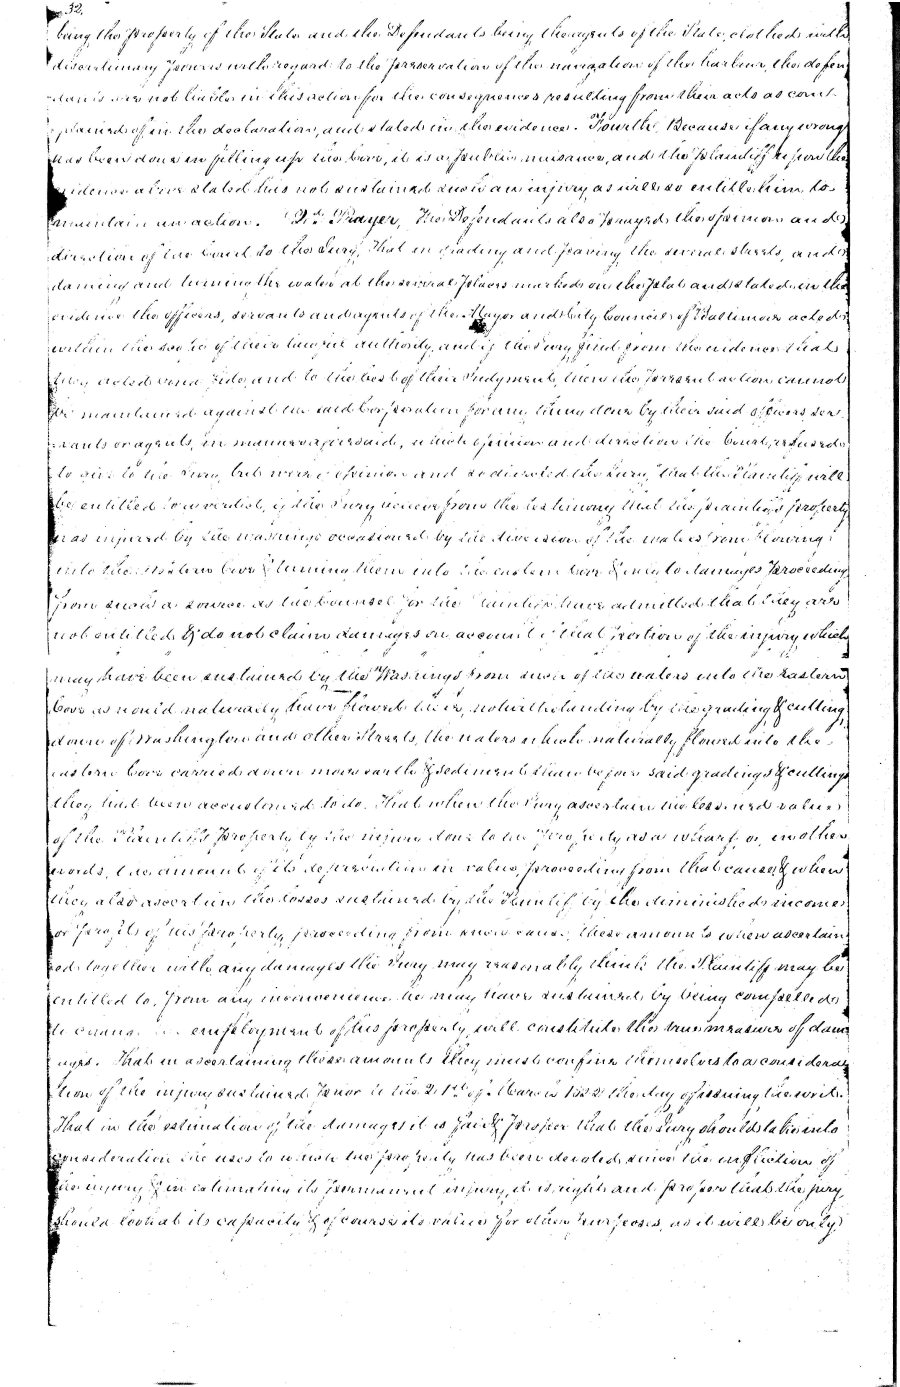 32.
being the property of the State and the Defendants being the agents of the State, clothed with
discretionary powers with regard to the preservation of the navigation of the harbour, the defen
dants are not liable in this action for the consequences resulting from their acts as com
plained of in the declaration, and stated in the evidence. Fourth, Because if any wrong
has been done in filling up the cove, it is a public nuisance, and the plaintiff upon the
evidence above stated has not sustained such an injury, as will so entitle him to
maintain an action. 2d. Prayer, The Defendants also prayed the opinion and
direction of the Court to the Jury, that in grading and paving the several streets, and
daming and turning the water at the several places marked on the plat and stated in the
evidence the officers, servants and agents of the Mayor and City Council of Baltimore acted
within the scope of their lawful authority, and if the Jury find from the evidence that
they acted bona fide, and to the best of their Judgment, then the present action cannot
be maintained against the said Corporation for any thing done by their said officers ser
vants or agents, in manner aforesaid, which opinion and direction the Court refused
to give to the Jury, but were of opinion and so directed the Jury, "that the Plaintiff will
be entitled to a verdict, if the Jury believe from the testimony that the plaintiff's property
was injured by the washings occasioned by the diversion of the waters from flowing
into the western Cove & turning them into the eastern Cove & only to damages proceeding
from such a source as the Counsel for the Plaintiff have admitted that they are
not entitled & do not claim damages on account of that portion of the injury which
may have been sustained by the Washings from such of the waters into the Eastern
Cove as would naturally have flowed there, notwithstanding by the grading & cutting
down of Washington and other Streets, the waters which naturally flowed into the
eastern Cove carried down more earth & sediment than before said gradings & cuttings
they had been accustomed to do. That when the Jury ascertain the lessened value
of the Plaintiff's property by the injury done to the property as a wharf, or, in other
words, the amount of its depreciation in value, proceeding from that cause & when
they also ascertain the losses sustained by the Plaintiff by the diminished income
or profits of his property, proceeding from such cause, these amounts when ascertain
ed together with any damages the Jury may reasonably think the Plaintiff may be
entitled to, from any inconvenience he may have sustained by being compelled
to change the employment of his property, will constitute the true measure of dam
ages. That in ascertaining these amounts they must confine themselves to a considera
tion of the injury sustained prior to the 21st of March 1822 the day of issuing the writ.
That in the estimation of the damages it is fair & proper that the Jury should take into
consideration the uses to which the property has been devoted since the infliction of
the injury & in estimating its permanent injury, it is right and proper that the jury
should look at its capacity & of course its value for other purposes, as it will be only